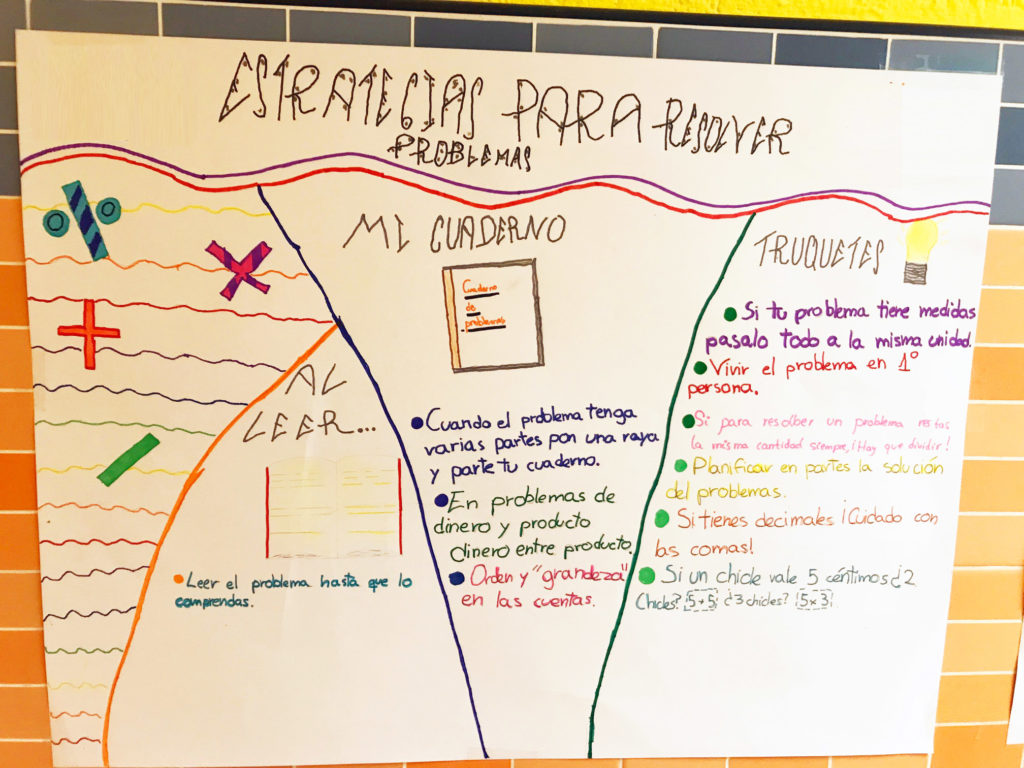 ESTRATEGIAS PARA RESOLVER
PROBLEMAS
AL
LEER...
Leer el problema hasta que lo
comprendas.
MI CUADERNO
Cuaderno
de
problemas
Cuando el problema tenga
varias partes pon una raya
y parte tu cuaderno.
En problemas de
dinero y producto
dinero entre producto.
Orden y "grandeza"
en las cuentas.
TRUQUETES
Si tu problema tiene medidas
pasalo todo a la misma unidad.
Vivir el problema en 1º
persona.
Si para resolber un problema restas
la misma cantidad siempre, ¡Hay que dividir!
Planificar en partes la solución
del problemas.
Si tienes decimales ¡Cuidado con
las comas!
Si un chicle vale 5 céntimos ¿2
chicles? 5+5 ¿3 chicles? 5x3